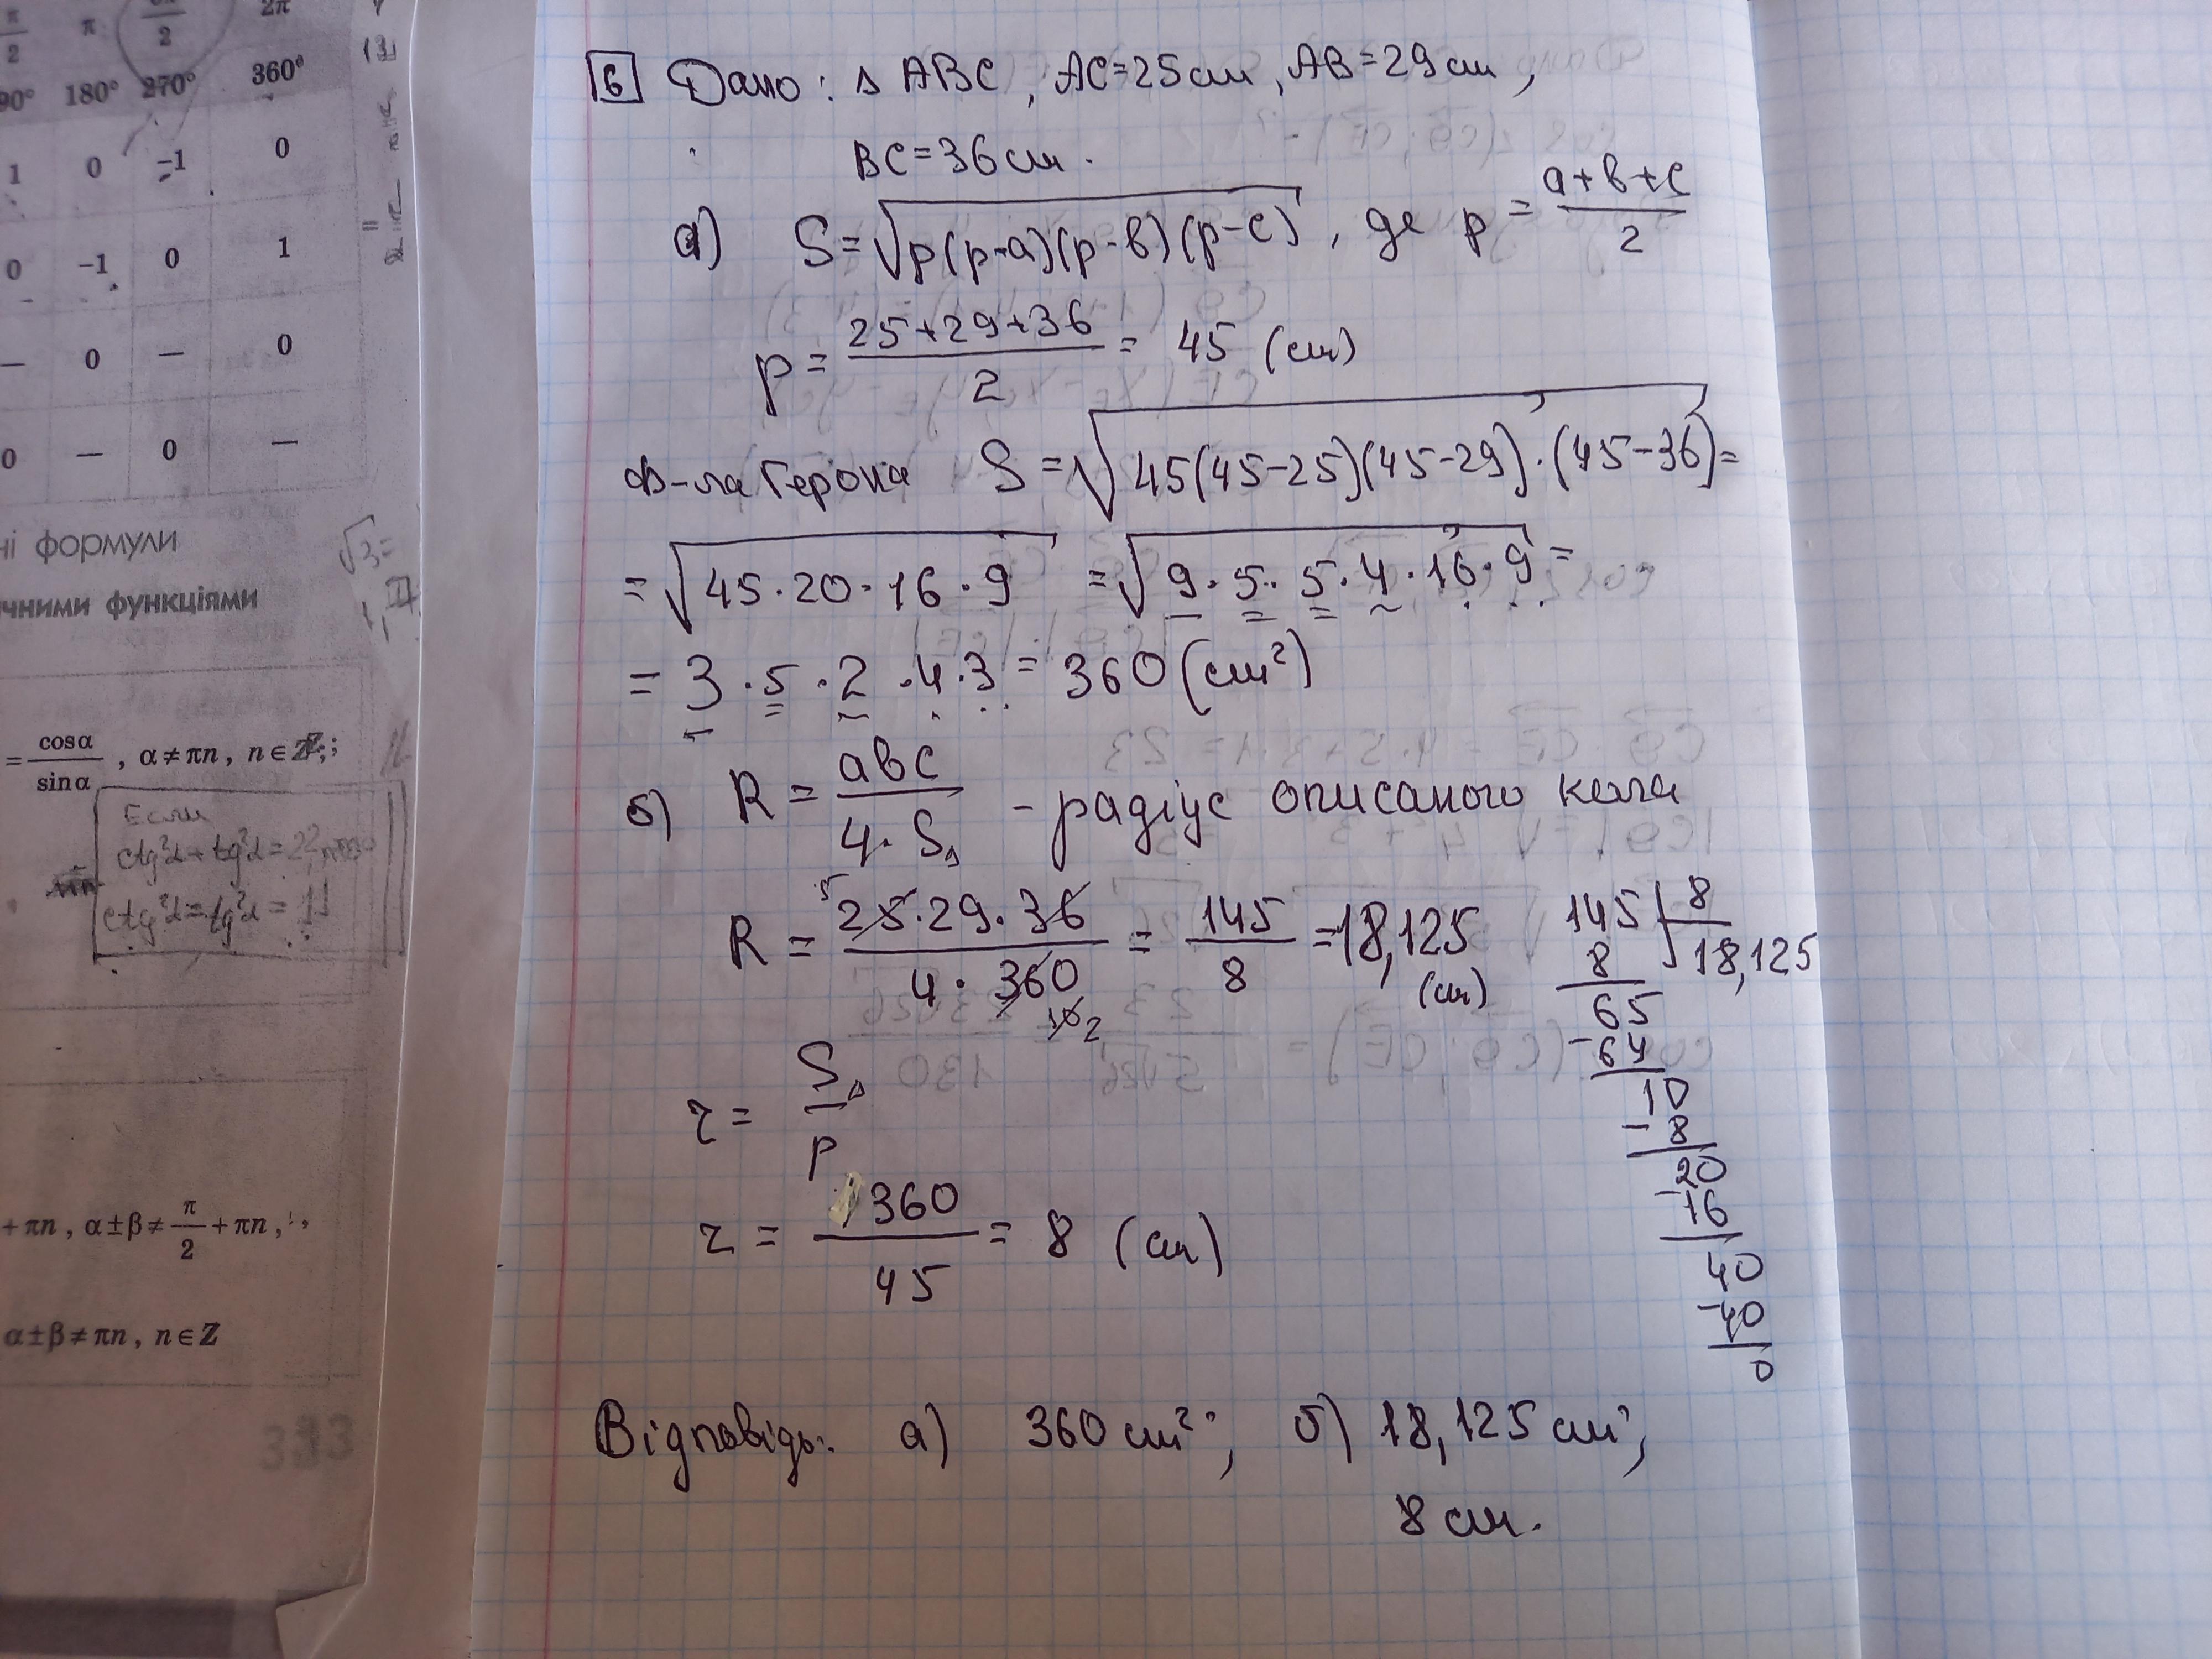 π/2 π 3π/2 2π
90° 180° 270° 360°
1 0 -1 0
0 -1 0 1
— 0 — 0
0 — 0 —
ні формули
чними функціями
= cosα/sinα , α ≠ πn , n ∈ Z ;
Если
ctg²α = tg²α =
+ πn , α ± β ≠ π/2 + πn ,
α ± β ≠ πn , n ∈ Z
6 Дано : △ ABC , AC = 25 см , AB = 29 см ,
BC = 36 см .
а) S = √p(p-a)(p-b)(p-c) , де p = a+b+c/2
p = 25+29+36/2 = 45 (см)
Ф-ла Герона S = √45(45-25)(45-29)·(45-36) =
= √45·20·16·9 = √9·5·5·4·16·9 =
= 3·5·2·4·3 = 360 (см²)
б) R = abc/4·S△ - радіус описаного кола
R = 25·29·36/4·360 = 145/8 = 18,125 (см)
5
10 2
145 8
8 18,125
65
-64
10
-8
20
-16
40
-40
0
r = S△/p
r = 360/45 = 8 (см)
Відповідь: а) 360 см² ; б) 18,125 см ;
8 см.